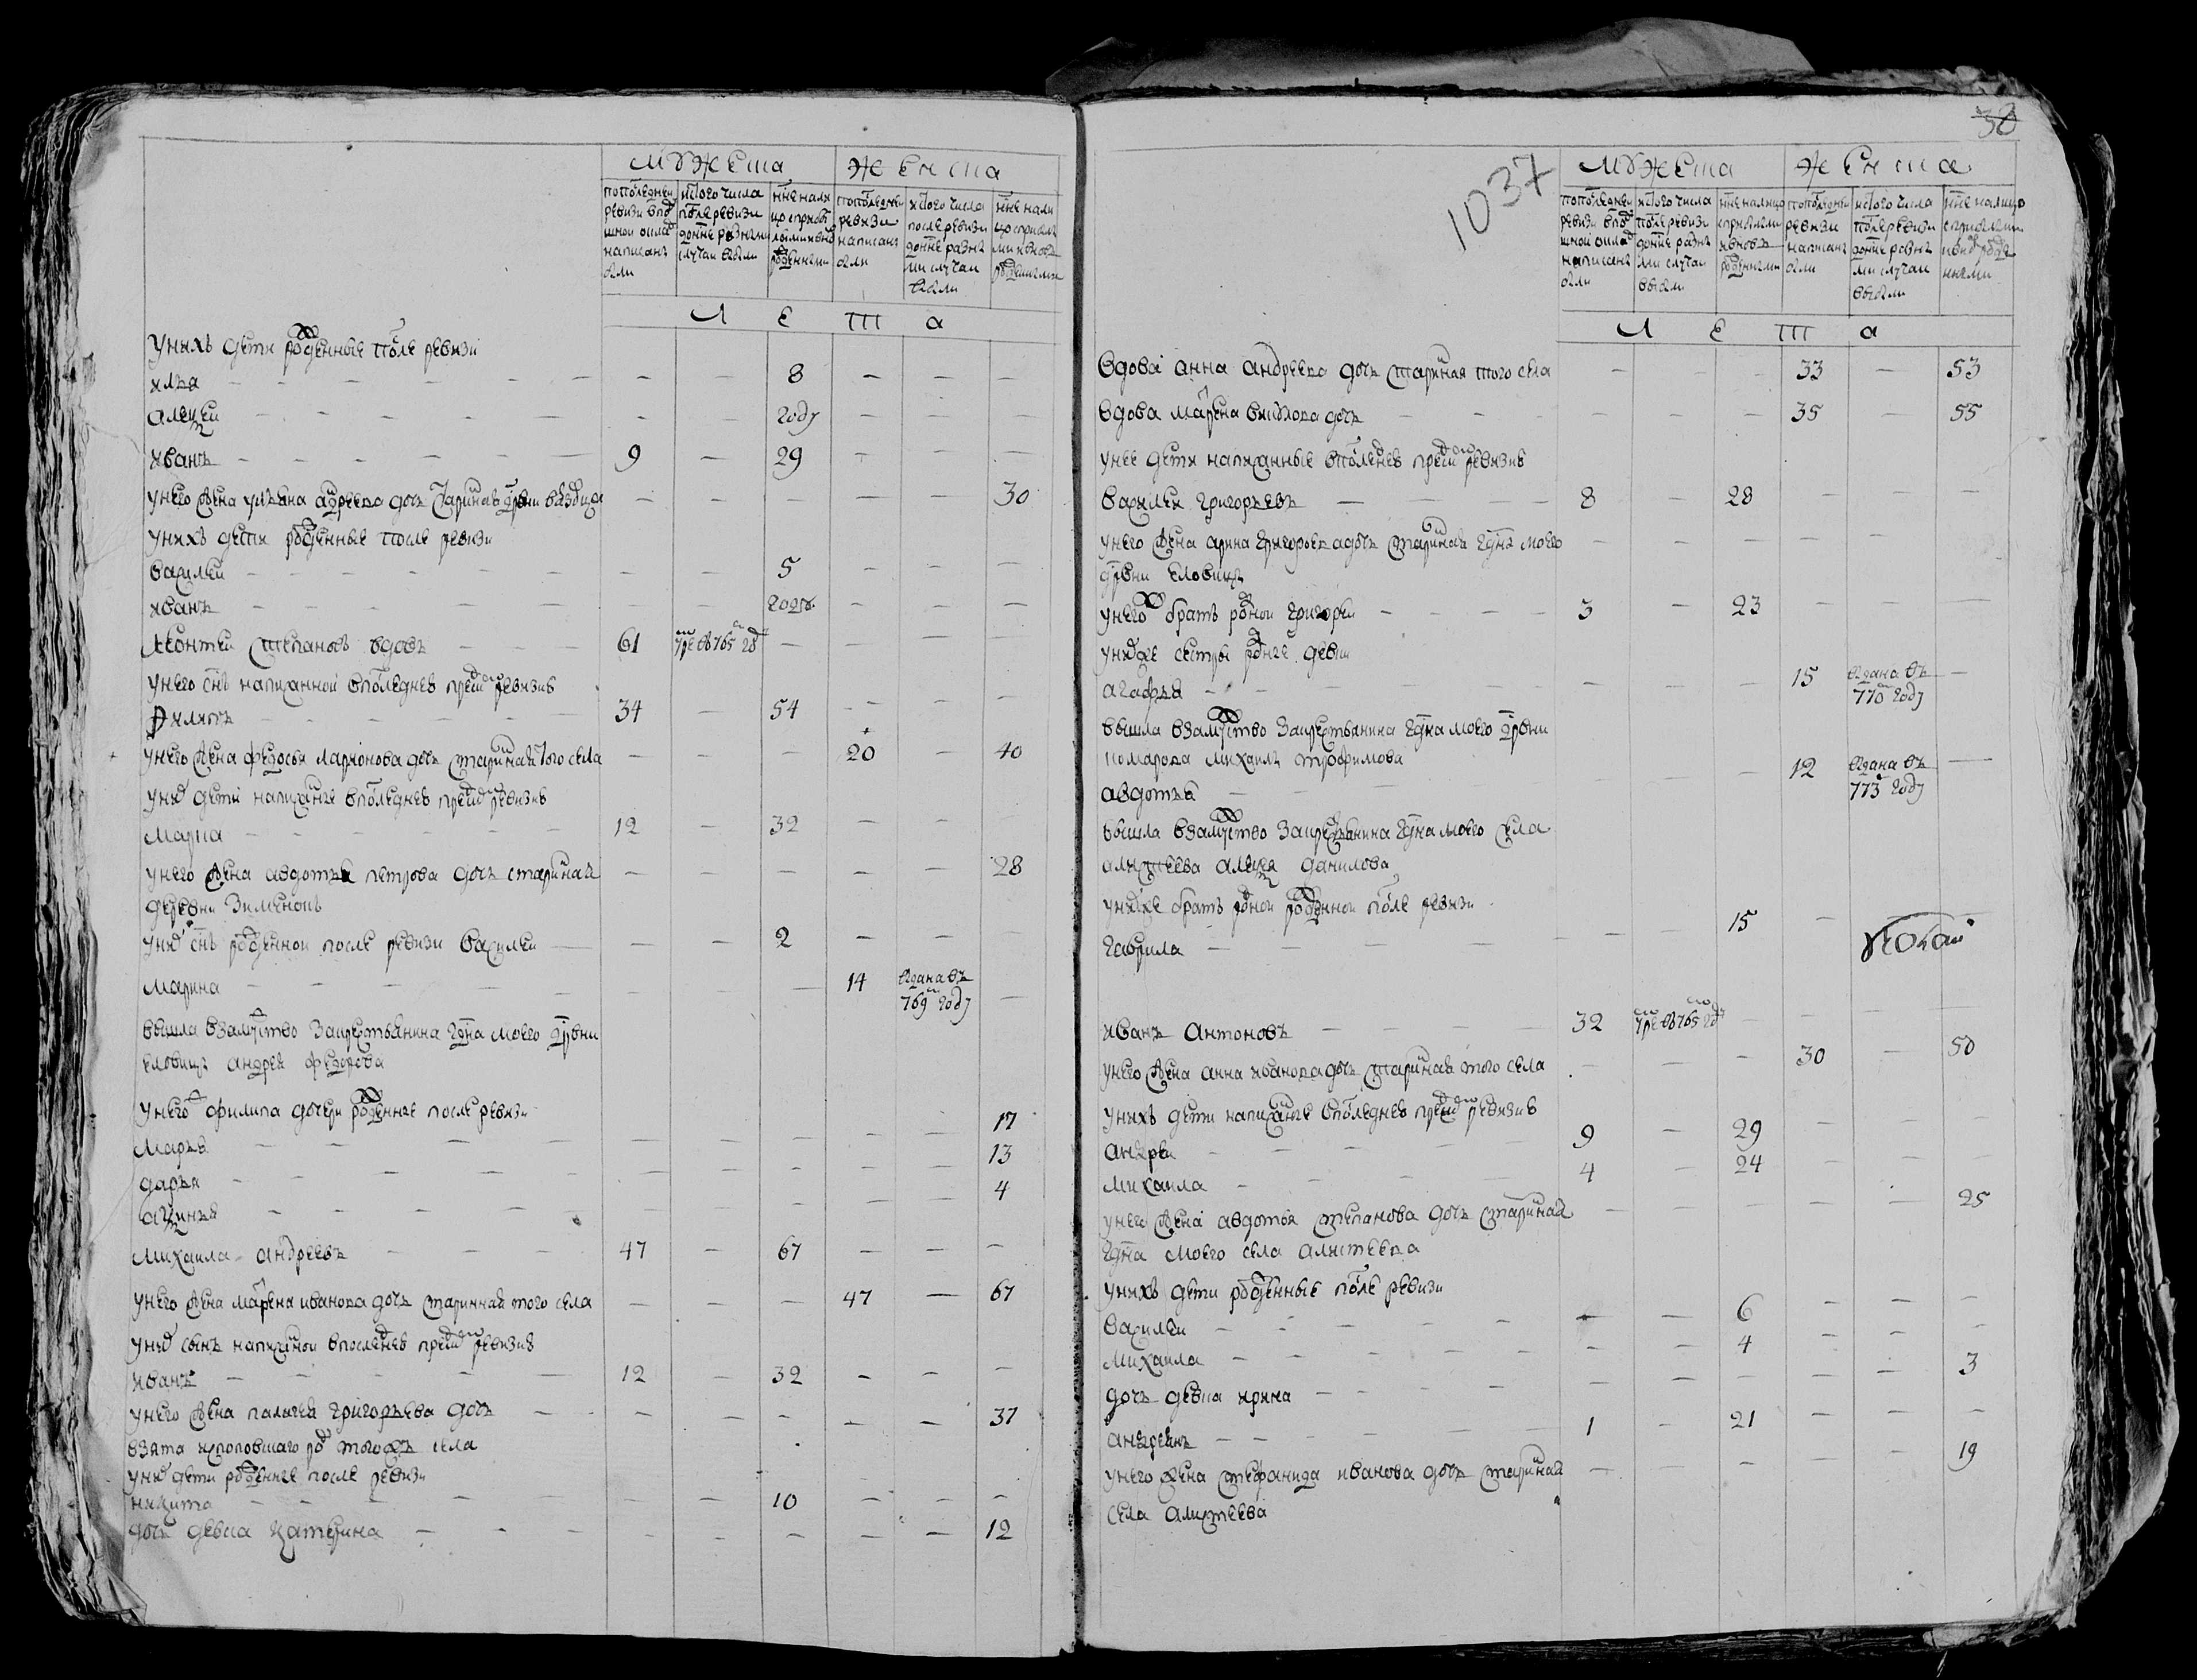 мужеска женска
попоследнеи ревизи вподушной оклад написаны были
ис того числа после ревизи до ныне разными случаи выбыли
ныне налицо
попоследнеи ревизи написаны были
ис того числа после ревизи до ныне разными случаи выбыли
ныне налицо
Л е т а
у них дети рожденные после ревизи
илья 8
алексеи году
иванъ 9 29
у него жена ульяна андреева дочь 30
у нихъ дети рожденные после ревизи
василеи 5
иванъ году
леонтеи степановъ вдовъ 61 умре въ 765 году
у него сынъ написанной в последнев пред сим ревизие
филипъ 34 54
у него жена федосья ларионова дочь стариннаѧ того села 20 40
у них дети написанные в последнев пред сим ревизие
марка 12 32
у него жена авдотья петрова дочь стариннаѧ 28
деревни зименокъ
у них сынъ рожденнои после ревизи василеи 2
марина 14 выдана въ 769 году
вышла в замуство за крестьянина г дна моего дрвни
еловицъ андрея федорова
у него филипа дочери рожденные после ревизи
марья 17
дарья 13
аксинья 4
михаила андреевъ 47 67
у него жена марфена иванова дочь старинная того села 47 67
у них сынъ написанной в последнев пред сим ревизие
иванъ 12 32
у него жена палагея григорьева дочь 37
взята того жъ села
у них дети рожденные после ревизи
никита 10
дочь девка катерина 12
38
1037
мужеска женска
попоследнеи ревизи вподушной оклад написаны были
ис того числа после ревизи до ныне разными случаи выбыли
ныне налицо
попоследнеи ревизи написаны были
ис того числа после ревизи до ныне разными случаи выбыли
ныне налицо
л е т а
вдова анна андреева дочь старинная того села 33 53
вдова марфена дочь 35 55
у нее дети написанные в последнев пред сим ревизие
василеи григорьевъ 8 28
у него жена арина григорьева дочь стариннаѧ г дна моего
дрвни еловицъ
у него ж братъ роднои григореи 3 23
у них же сестры родные девки
агафья 15 выдана въ 770 году
вышла в замуство за крестьянина г дна моего дрвни
комарова михаила трофимова
авдотья 12 выдана въ 773 году
вышла в замуство за крестьянина г дна моего села
алистеева алексея данилова
у них же братъ роднои рожденнои после ревизи
гаврила 15
иванъ антоновъ 32 умре въ 765 году
у него жена анна иванова дочь стариннаѧ того села 30 50
у нихъ дети написанные в последнев пред сим ревизие
андреи 9 29
михаила 4 24
у него жена авдотья степанова дочь стариннаѧ 25
г дна моего села алистеева
у нихъ дети рожденные после ревизи
василеи 6
михаила 4
дочь девка ирина 3
андреянъ 1 21
у него жена стефанида иванова дочь стариннаѧ 19
села алистеева